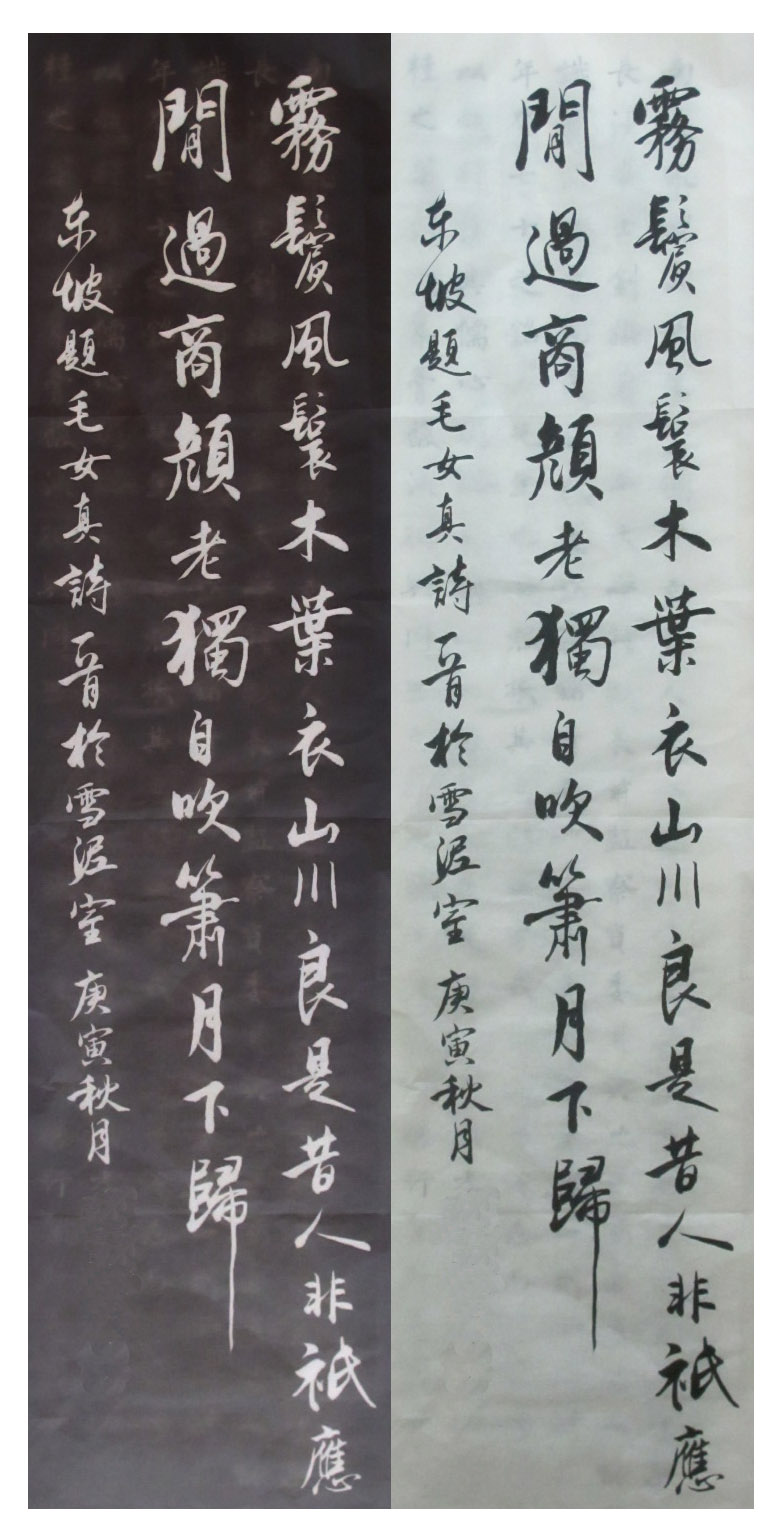 霧鬢風鬟木葉衣山川良是昔人非祇應
閒過商顏老獨自吹簫月下歸
东坡題毛女真詩一首於雪泥室 庚寅秋月
霧鬢風鬟木葉衣山川良是昔人非祇應
閒過商顏老獨自吹簫月下歸
东坡題毛女真詩一首於雪泥室 庚寅秋月